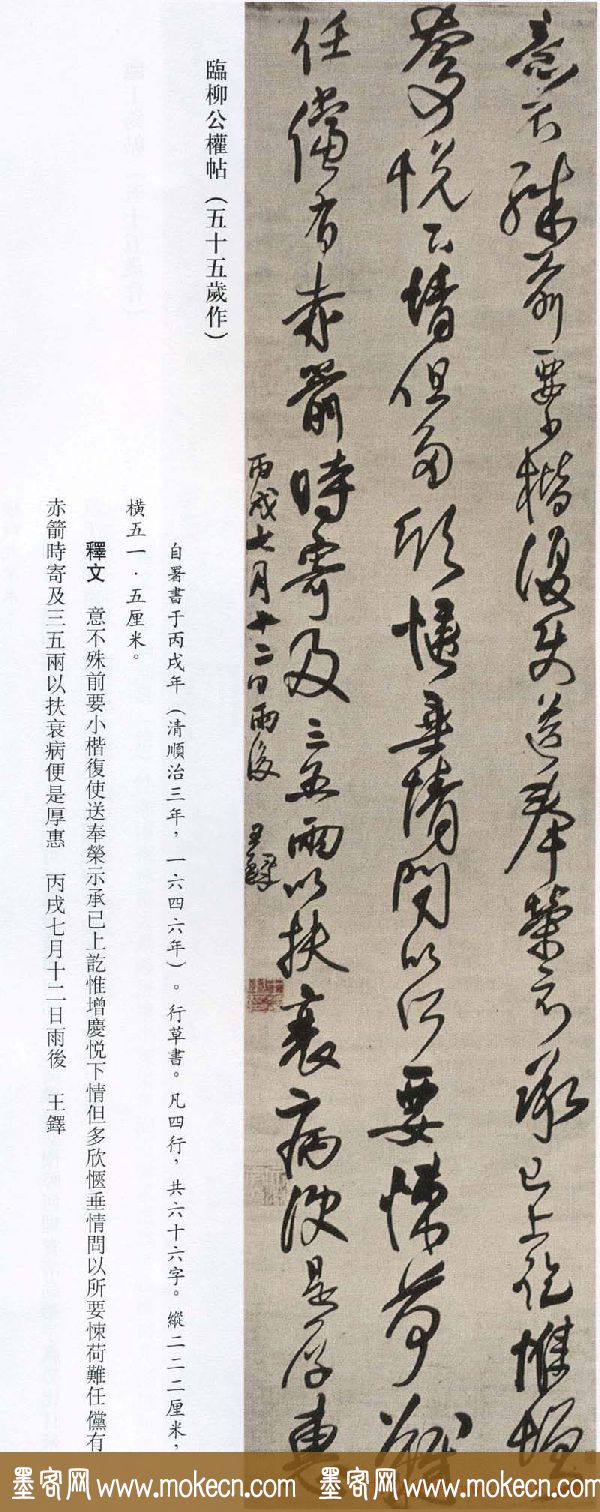 意不殊前要小楷復使送奉榮示承已上訖惟增
慶悦下情但多欣愜垂情問以所要悚荷難
任儻有赤箭時寄及三五兩以扶衰病便是厚惠
丙戌七月十二日雨後 王鐸
臨柳公權帖（五十五歲作）
自署書于丙戌年（清順治三年，一六四六年）。行草書。凡四行，共六十六字。縱二二二厘米，
橫五一·五厘米。
釋文 意不殊前要小楷復使送奉榮示承已上訖惟增慶悦下情但多欣愜垂情問以所要悚荷難任儻有
赤箭時寄及三五兩以扶衰病便是厚惠 丙戌七月十二日雨後 王鐸
墨客网 www.mokecn.com 墨客网 www.mokecn.com